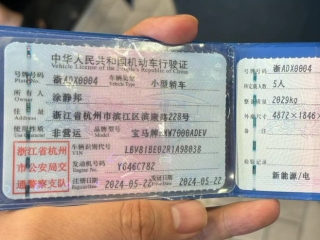 中华人民共和国机动车行驶证
Vehicle License of the People's Republic of China
号牌号码 浙ADX0004 车辆类型 小型轿车
Plate No.
所有人 涂静邦
Owner
住址 浙江省杭州市滨江区滨康路228号
Address
使用性质 非营运 品牌型号 宝马牌BMW7000ADEV
浙江省杭州
市公安局交
通警察支队
车辆识别代号 LBV81BE02R1A98038
VIN
发动机号码 YG46C7BZ
注册日期 2024-05-22 发证日期 2024-05-22
号牌号码 浙ADX0004
5人
总质量 2029kg
4872×1846×
新能源/电